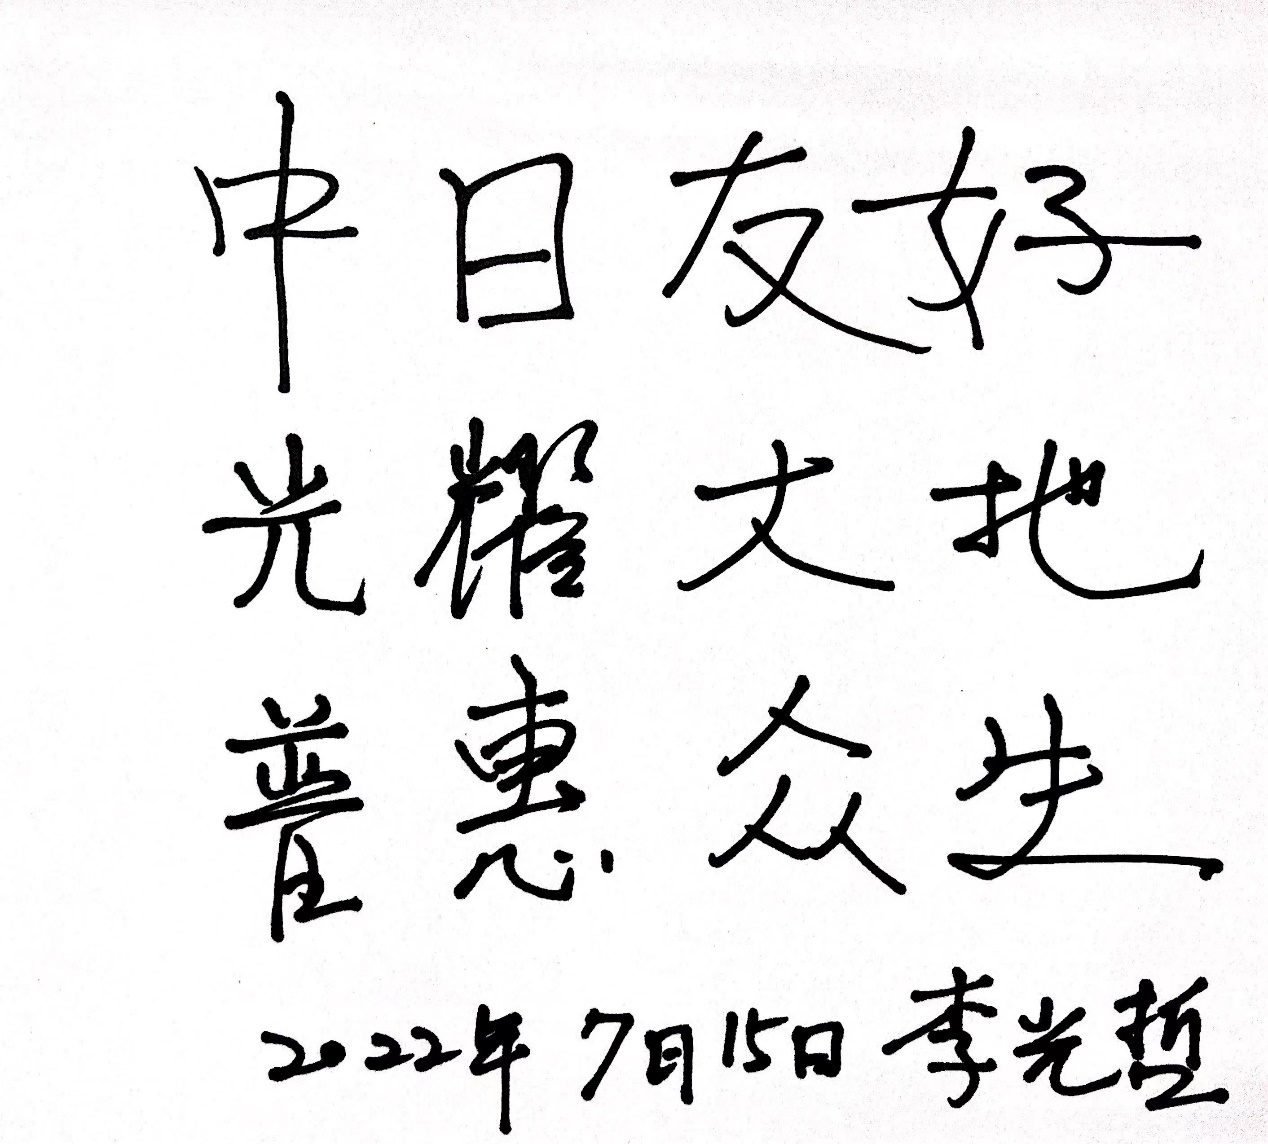 中日友好
光耀大地
普惠众生
2022年7月15日 李光哲